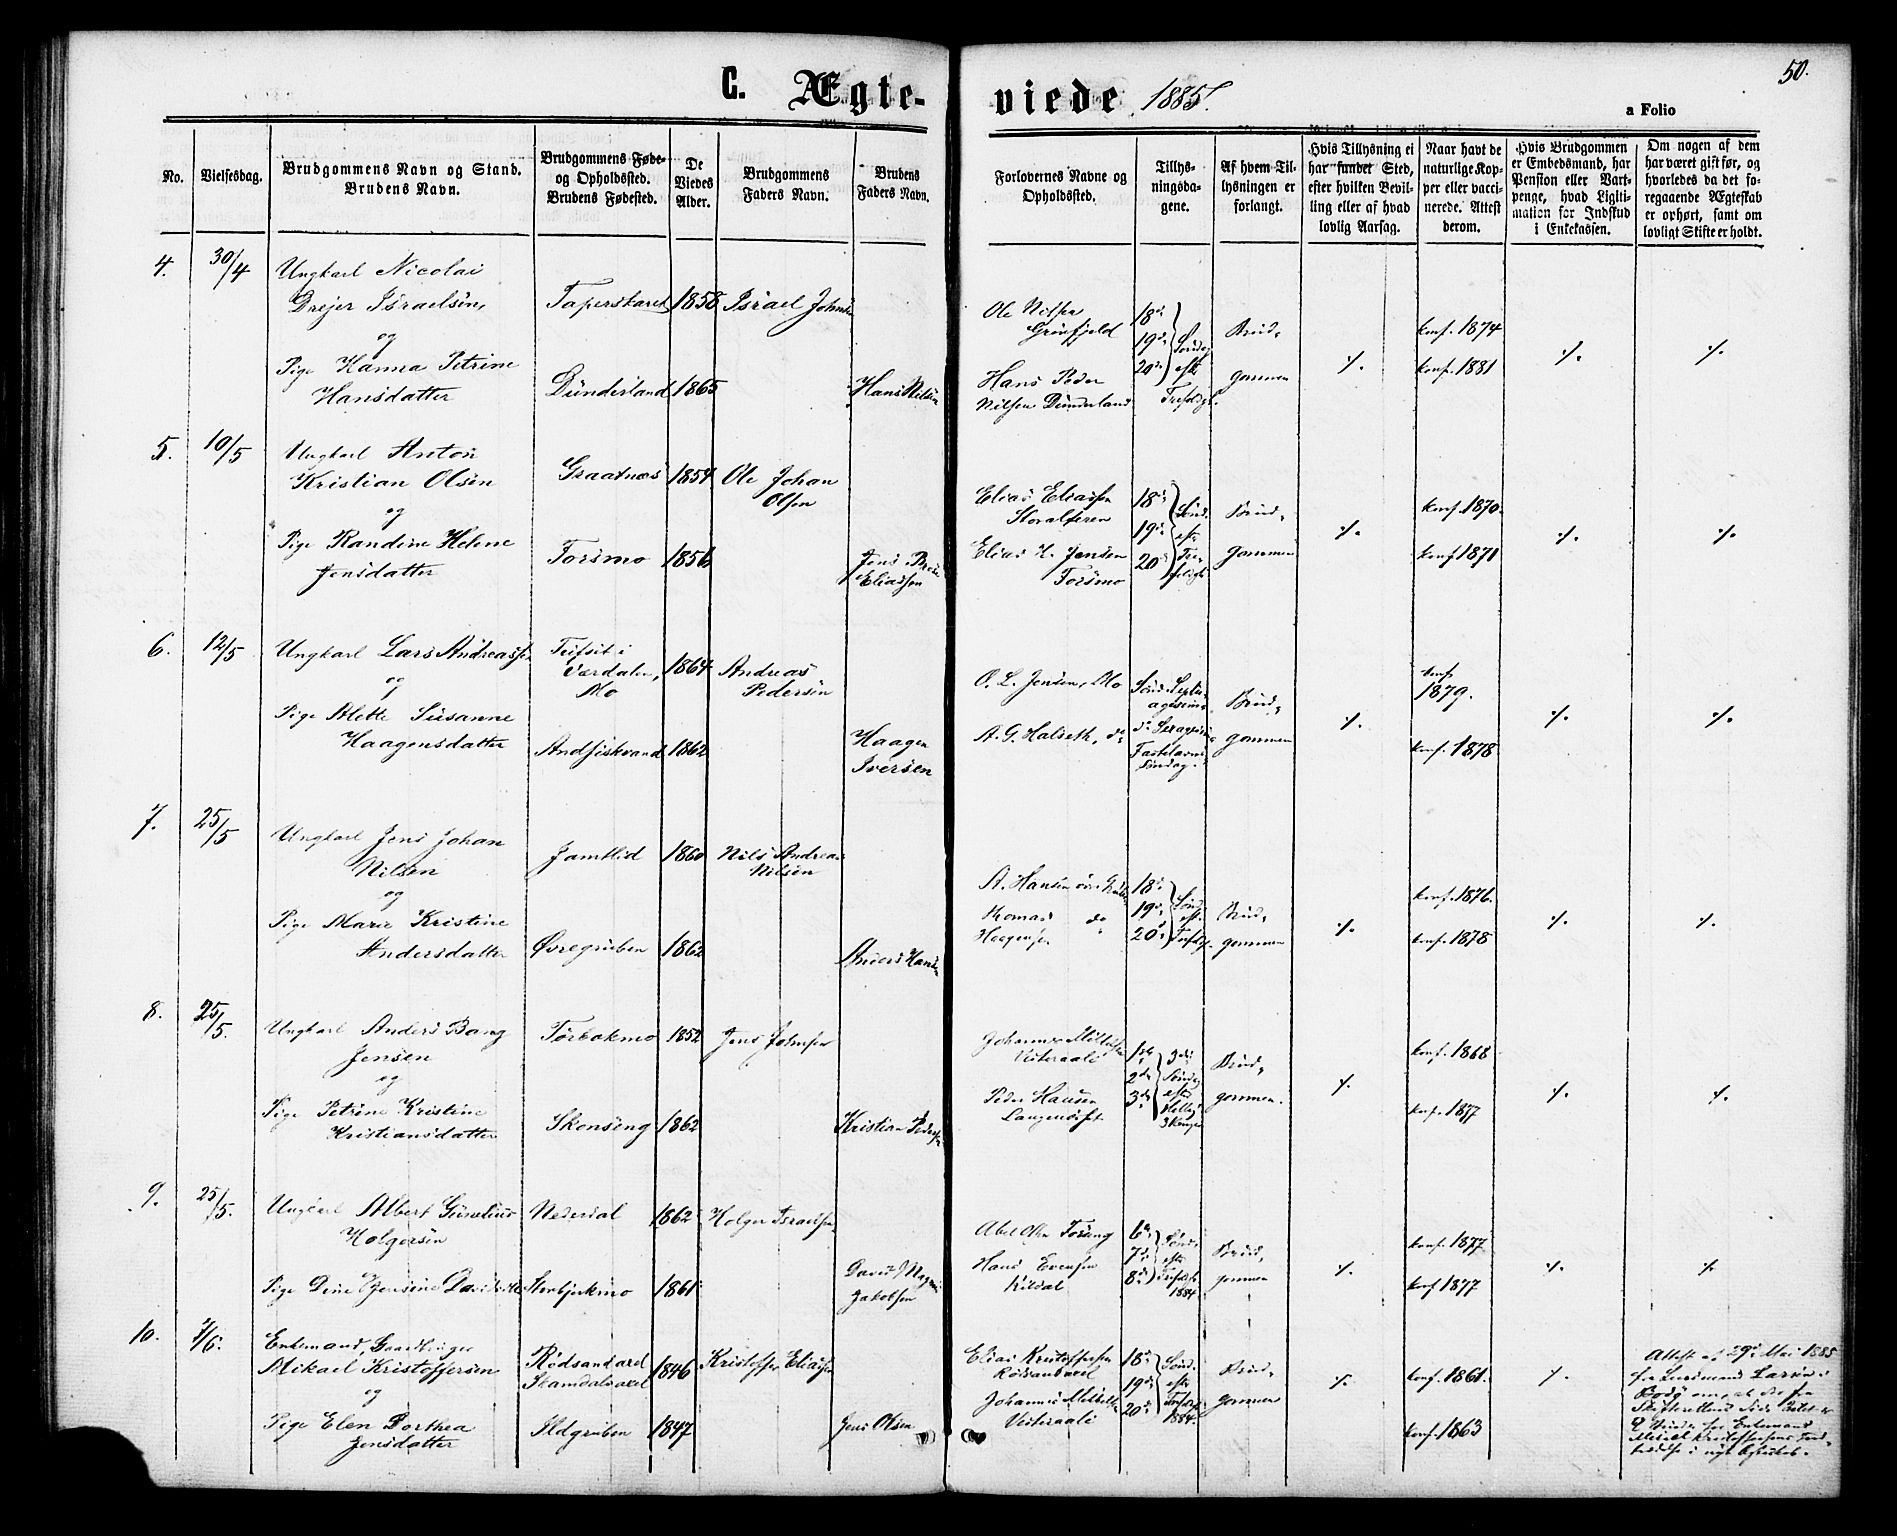 C. Ægte-
viede 1885.
50.
a Folio
No.
Vielsesdag.
Brudgommens Navn og Stand.
Brudens Navn.
Brudgommens Føde-
og Opholdssted.
Brudens Fødested.
De
Viedes
Alder.
Brudgommens
Faders Navn.
Brudens
Faders Navn.
Forlovernes Navne og
Opholdssted.
Tillys-
ningsda-
gene.
Af hvem Til-
lysningen er
forlangt.
Hvis Tillysning ei
har fundet Sted,
efter hvilken Bevil-
ling eller af hvad
lovlig Aarsag.
Naar havt de
naturlige Kop-
per eller vacci-
nerede. Attest
derom.
Hvis Brudgommen
er Embedsmand, har
Pension eller Vart-
penge, hvad Ligiti-
mation for Indskud
i Enkekassen.
Om nogen af dem
har været gift før, og
hvorledes da det fo-
regaaende Ægteskab
er ophørt, samt om
lovligt Skifte er holdt.
4.
30/4
Ungkarl Nicolai
Drejer Israelsen,
og
Pige Hanna Petrine
Hansdatter
Taperskaret
Dunderland
1858
1865
Israel Johnsen
Hans Nilsen
Ole Nilsen
Grønfjeld
Hans Peder
Nilsen Dunderland
18de
19de
20de
Sønd.
eft.
Trefoldigh.
Brud-
gommen
./.
konf. 1874
konf. 1881
./.
./.
5.
10/5
Ungkarl Anton
Kristian Olsen
og
Pige Randine Helene
Jensdatter
Graatnæs
Forsmo
1854
1856
Ole Johan
Olsen
Jens
Eliassen
Elias Eliassen
Storalteren
Elias H. Jensen
Forsmo
18de
19de
20de
Sønd.
eft.
Brud-
gommen
./.
konf. 1870.
konf. 1871
./.
./.
6.
12/5
Ungkarl Lars Andreassen
og
Pige Alette Susanne
Haagensdatter
i
Værdalen,
Mo
Andfiskvand
1864
1862
Andreas
Pedersen
Haagen
Iversen
O. L. Jensen, Mo
A. G. Halseth, do
Sønd. Septu-
agesima
Fastelavns
Søndag.
Brud-
gommen
./.
konf.
1879.
konf. 1878
./.
./.
7.
25/5
Ungkarl Jens Johan
Nilsen
og
Pige Marie Kristine
Andersdatter
Jamtlid
Øvregruben
1860
1862
Nils Andreas
Nilsen
Anders Hansen
A. Hansen
Thomas do
Haagensen
18de
19de
20de
Sønd.
eft.
Trefold.
Brud-
gommen
./.
konf. 1876.
konf. 1878
./.
./.
8.
25/5.
Ungkarl Anders Bang
Jensen
og
Pige Petrine Kristine
Kristiansdatter
Tørbekmo
Skonseng
1852
1862
Jens Johnsen
Kristian Pedersen
Johannes Mikkelsen
Vesteraali
Peder Hansen
Langendset
1ste
2den
3die
Sønd.
efter
Brud-
gommen.
./.
konf. 1868
konf. 1877
./.
./.
9.
25/5.
Ungkarl Albert Gunelius
Holgersen
og
Pige Dine Jensine
Nedredal
Stenbjekmo
1862
1861
Holger Israelsen
David Magnus
Jakobsen
Abel Olsen
Hans Evensen
Kildal
6te
7de
8de
Sønd.
efter
Trefold.
1884.
Brud-
gommen
./.
konf. 1877
konf. 1877
./.
./.
10.
7/6.
Enkemand, Gaardbruger
Mikael Kristoffersen
og
Pige Elen Dorthea
Jensdatter
Rødsandaxel
Skamdalsaxel
Ildgruben
1846
1847
Kristoffer Eliassen
Jens Olsen
Elias Kristoffersen
Rødsandaxel
Johannes Mikkelsen
Vesteraali
18de
19de
20de
Sønd.
efter
Trefold.
1884.
Brud-
gommen
./.
konf. 1861.
konf. 1863
./.
Attest af 29de Mai 1885
fra Lensmand Larsen i
Bodø om, at der fra
Skifterettens Side Intet er
til Hinder for Enkemand
Mikael Kristoffersens Ind-
trædelse i nyt Ægteskab.